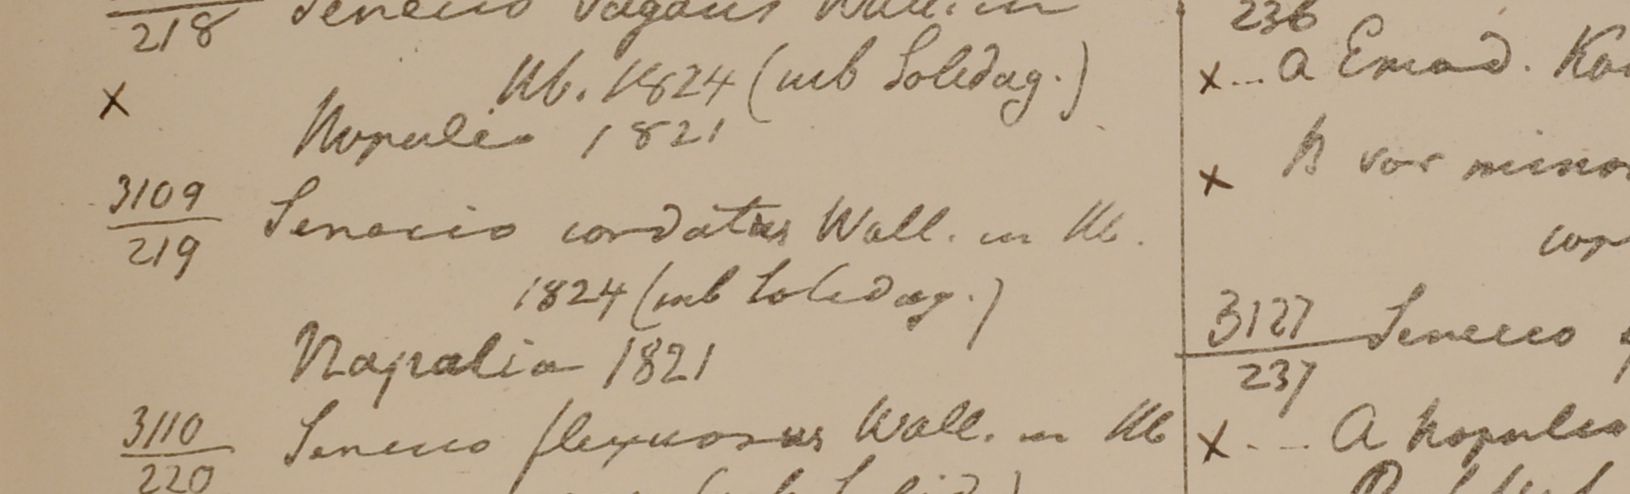 218 Senecio vagans Wall. in
Hb. 1824 (sub Solidag.)
x
Napalia 1821
3109
219 Senecio cordatus Wall. in Hb.
1824 (sub Solidag.)
Napalia 1821
3110
220 Senecio flexuosus Wall. in Hb
236
x -- A Emod. 
x B var minor
3127
237 Senecio
x -- A Napalia